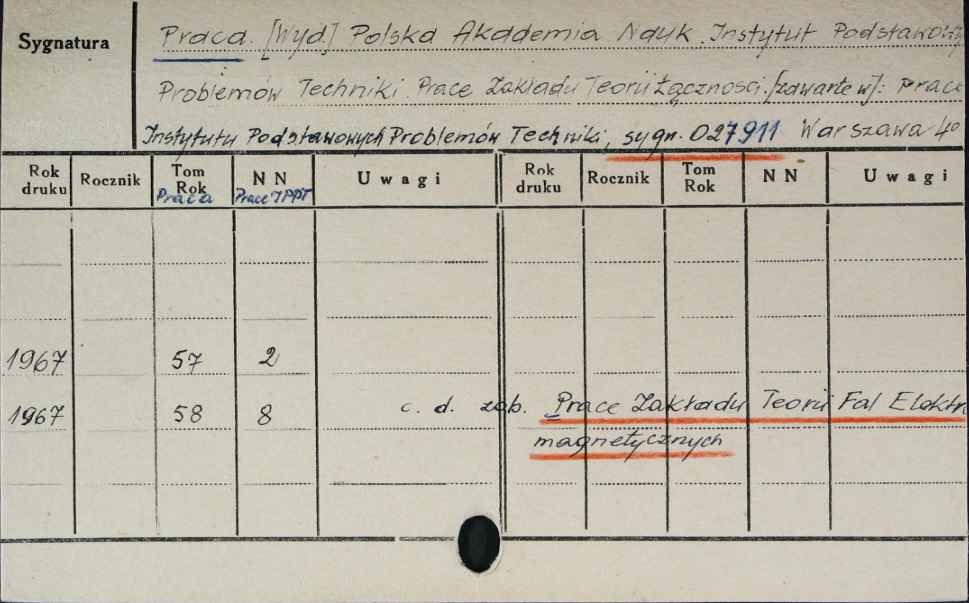 Sygnatura
Praca. [Wyd.] Polska Akademia Nauk. Instytut Podstawowy
Problemów Techniki. Prace Zakładu Teorii Łączności. [zawarte w]: Prace
Instytutu Podstawowych Problemów Techniki, sygn. 027911 Warszawa 40
Rok druku Rocznik Tom Rok Praca N N Prace IPPT Uwagi Rok druku Rocznik Tom Rok N N Uwagi
1967 57 2
1967 58 8 c. d. zob. Prace Zakładu Teorii Fal Elektro
magnetycznych